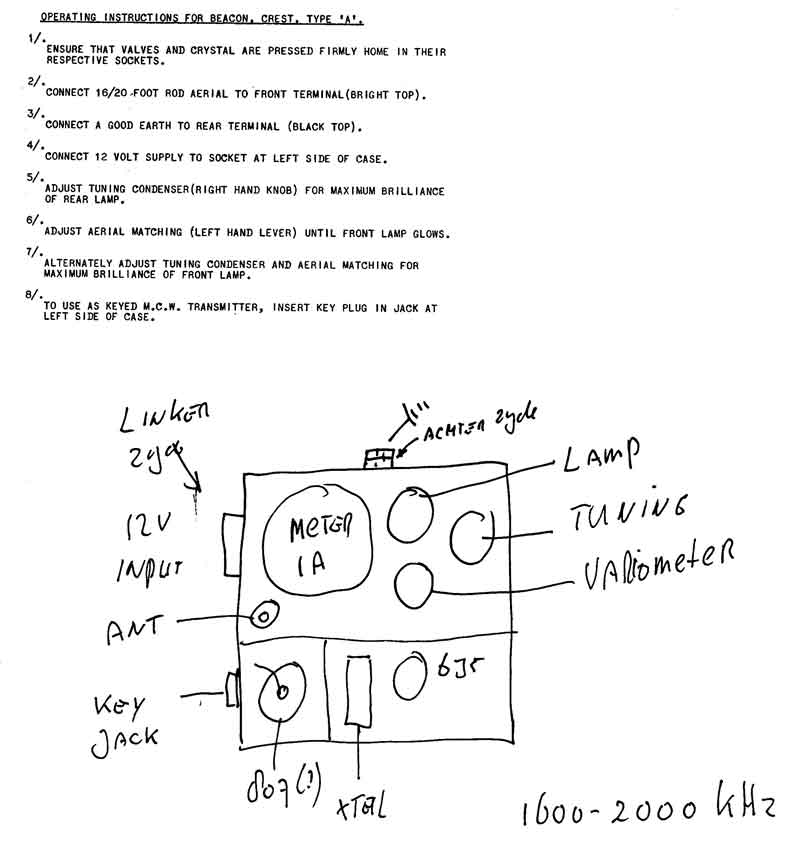 OPERATING INSTRUCTIONS FOR BEACON, CREST, TYPE 'A'.
1/.
ENSURE THAT VALVES AND CRYSTAL ARE PRESSED FIRMLY HOME IN THEIR
RESPECTIVE SOCKETS.
2/.
CONNECT 16/20-FOOT ROD AERIAL TO FRONT TERMINAL(BRIGHT TOP).
3/.
CONNECT A GOOD EARTH TO REAR TERMINAL (BLACK TOP).
4/.
CONNECT 12 VOLT SUPPLY TO SOCKET AT LEFT SIDE OF CASE.
5/.
ADJUST TUNING CONDENSER(RIGHT HAND KNOB) FOR MAXIMUM BRILLIANCE
OF REAR LAMP.
6/.
ADJUST AERIAL MATCHING (LEFT HAND LEVER) UNTIL FRONT LAMP GLOWS.
7/.
ALTERNATELY ADJUST TUNING CONDENSER AND AERIAL MATCHING FOR
MAXIMUM BRILLIANCE OF FRONT LAMP.
8/.
TO USE AS KEYED M.C.W. TRANSMITTER, INSERT KEY PLUG IN JACK AT
LEFT SIDE OF CASE.
LINKER
zyde
ACHTER zyde
LAMP
TUNING
VARIOMETER
METER
1A
12V
INPUT
ANT
6J5
KEY
JACK
807(?)
XTAL
1600-2000 kHz